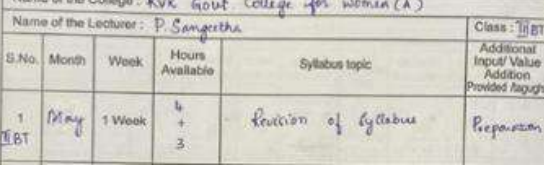 Name of the College : KVR Govt College for Women (A)
Name of the Lecturer : P. Sangeetha Class : III BT
S.No. Month Week Hours Available Syllabus topic Additional Input/ Value Addition Provided /taught
1 III BT May 1 Week 4 + 3 Revision of Syllabus Preparation